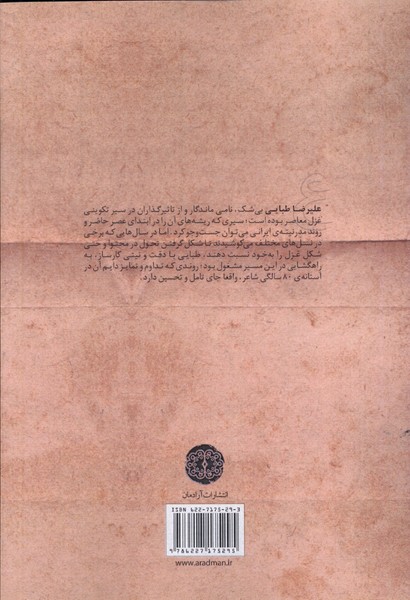 علیرضا طبایی بی‌شک، نامی ماندگار و از تاثیرگذاران در سیر تکوینی
غزل معاصر بوده است؛ سیری که ریشه‌های آن را در ابتدای عصر حاضر و
روند مدرنیته‌ی ایرانی می‌توان جست‌وجو کرد. اما در سال‌هایی که برخی
در نسل‌های مختلف می‌کوشیدند تا شکل گرفتن تحول در محتوا و حتی
شکل غزل را به خود نسبت دهند، طبایی با دقت و نیتی کارساز، به
راهگشایی در این مسیر مشغول بود؛ روندی که تداوم و تمایز دایم آن در
آستانه‌ی ۸۰ سالگی شاعر، واقعا جای تامل و تحسین دارد.
انتشارات آرادمان
ISBN 622-7175-29-3
9 786227 175295
www.aradman.ir